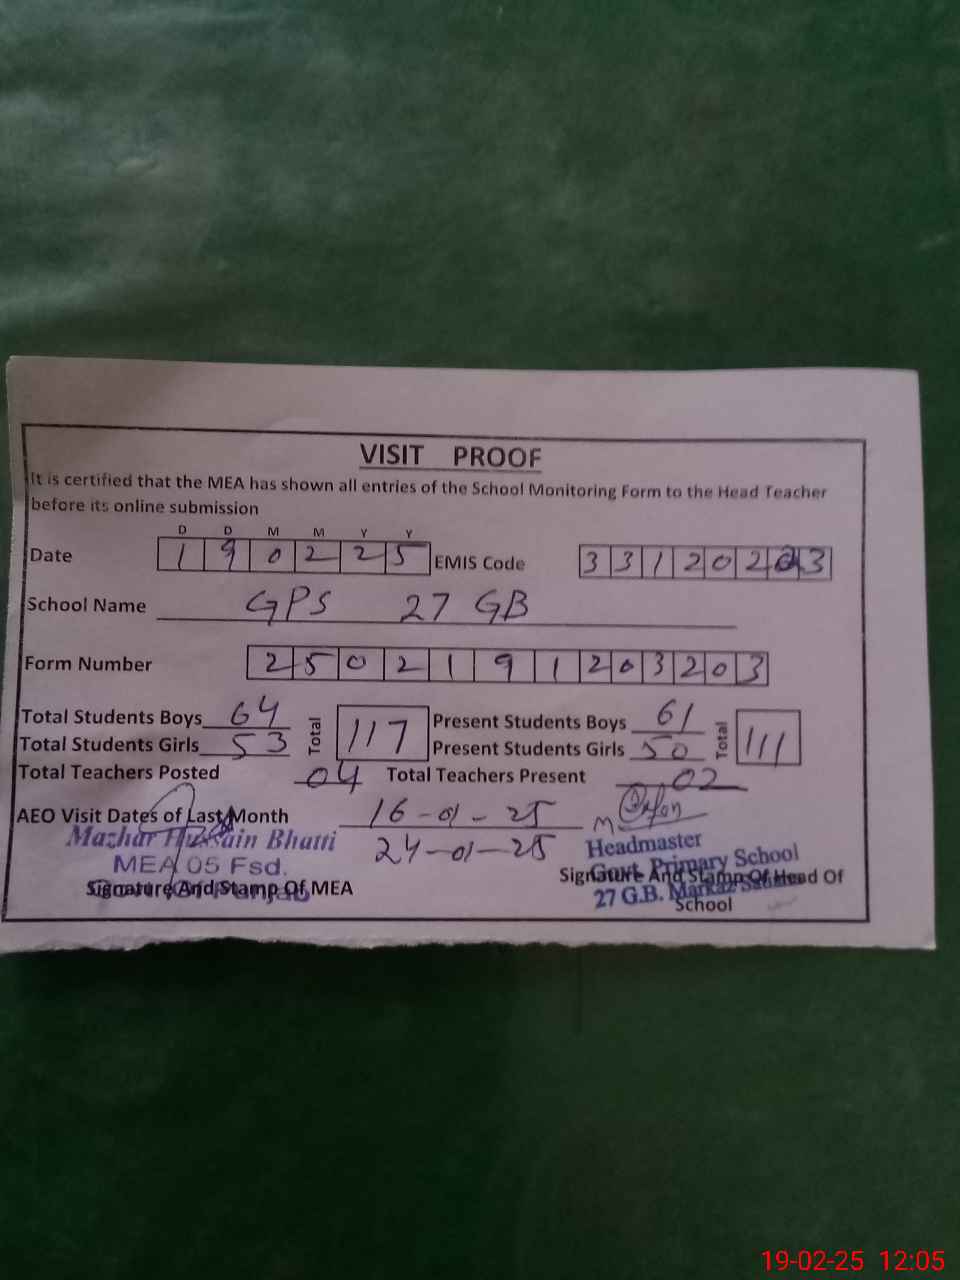 VISIT PROOF
It is certified that the MEA has shown all entries of the School Monitoring Form to the Head Teacher
before its online submission
D D M M Y Y
Date 1 9 0 2 2 5 EMIS Code 3 3 1 2 0 2 3
School Name GPS 27 GB
Form Number 2 5 0 2 1 9 1 2 0 3 2 0 3
Total Students Boys 64 Total 117 Present Students Boys 61 Total 111
Total Students Girls 53 Present Students Girls 50
Total Teachers Posted 04 Total Teachers Present 02
AEO Visit Dates of Last Month 16-01-25
24-01-25
Mazhar Hussain Bhatti
MEA 05 Fsd.
Signature And Stamp Of MEA
Headmaster
Govt. Primary School
27 G.B. Markaz
Signature And Stamp Of Head Of
School
19-02-25 12:05